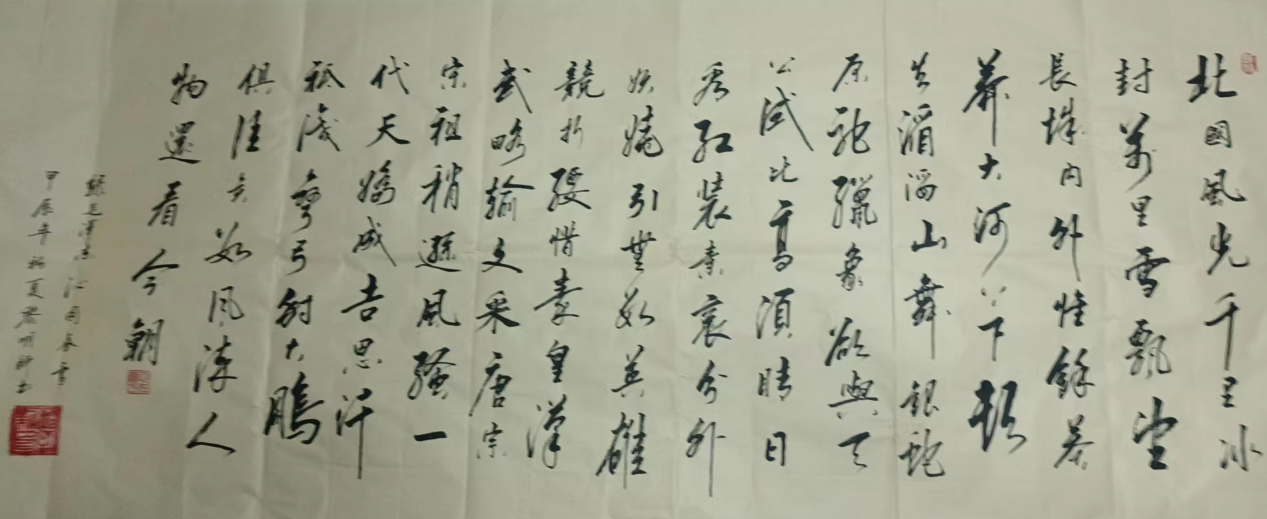 北國風光千里冰
封萬里雪飄望
長城内外惟餘莽
莽大河上下頓
失滔滔山舞銀蛇
原馳臘象欲與天
公試比高須晴日
看紅裝素裹分外
妖嬈引無數英雄
競折腰惜秦皇漢
武略輸文采唐宗
宗祖稍遜風騷一
代天嬌成吉思汗
祇識彎弓射大鵰
俱往矣數風流人
物還看今朝
錄毛澤東沁園春雪
甲辰年初夏